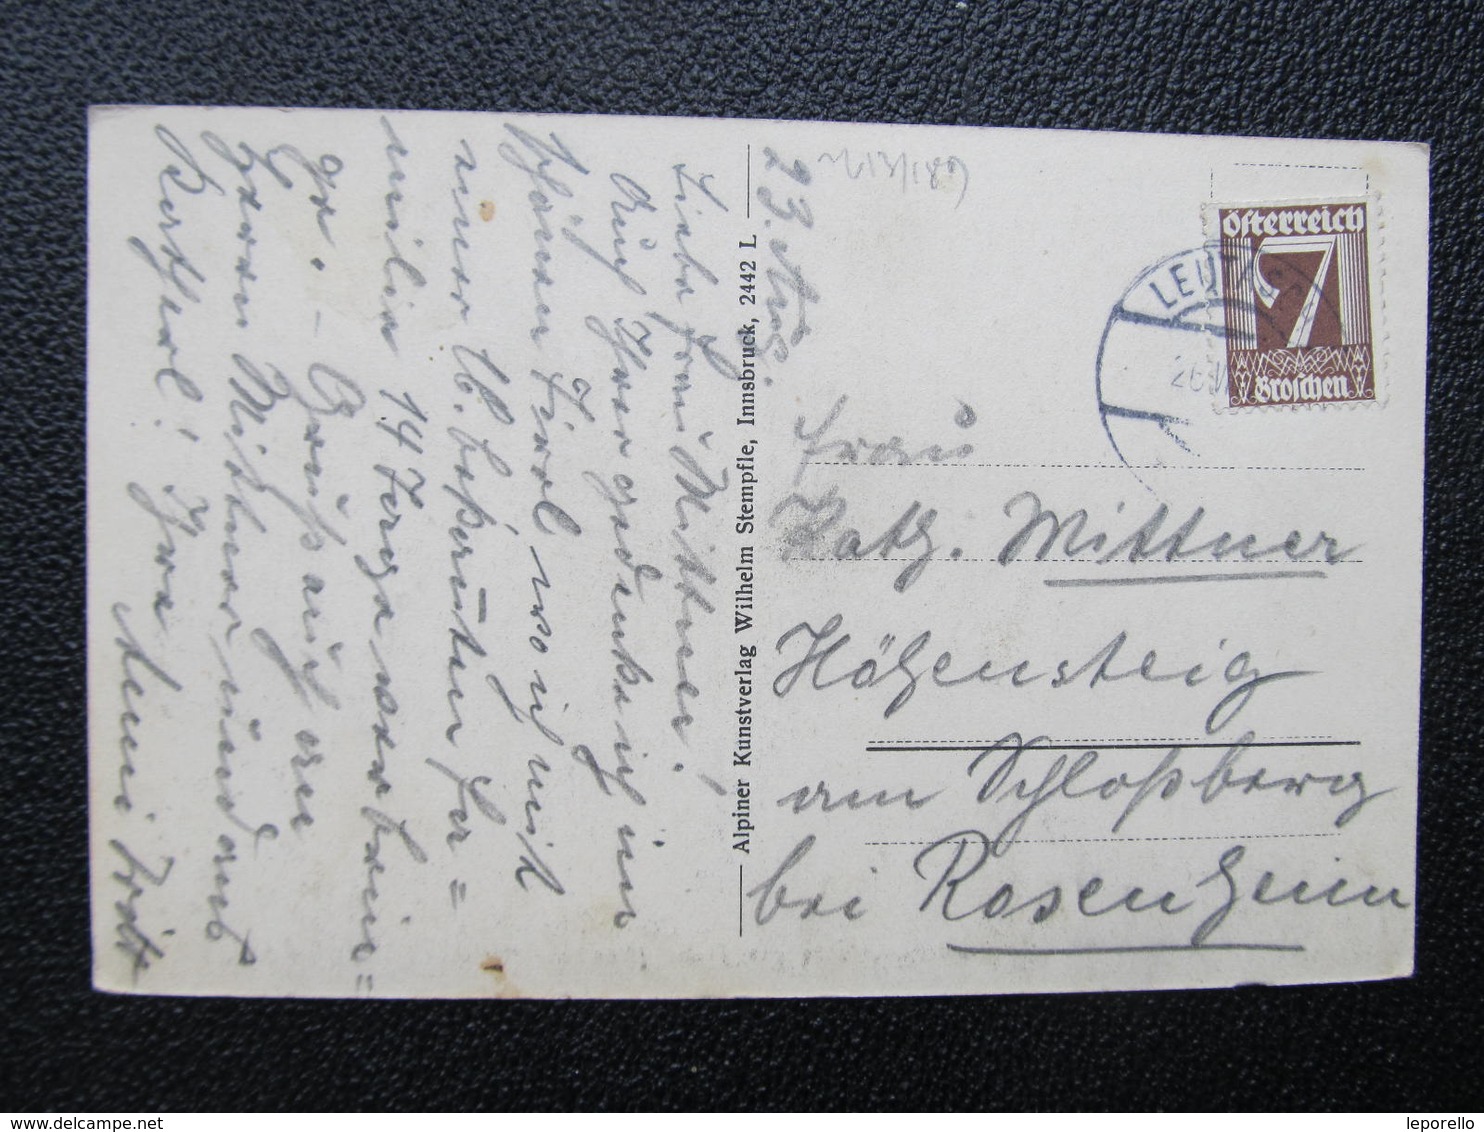 23. Aug.
Liebe Frau Mittner!
Auch Ihrer gedenke ich im
schönen Tirol wo ich mich
einer lb. bekannten Fa=
milie 14 Tage
ge. – Gruß auch an
Herrn Mittner und auch
Bertherl! Ihre
Alpiner Kunstverlag Wilhelm Stempfle, Innsbruck, 2442 L
Österreich
7
Groschen
LEUTAS
Frau
Kath. Mittner
Höhensteig
am Schloßberg
bei Rosenheim
www.delcampe.net
leporello